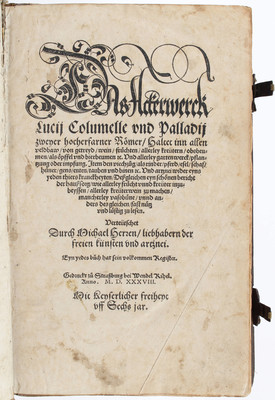 DAs Ackerwerck
Lucij Columelle vnd Palladij
zweyer hocherfarner Römer/
veldbaw/ von getreyd/ wein/ früchten/ allerley kreütern/
men/ als öpffel vnd bierbeumen ꝛc. Vnd allerley gartenwerck/ pflan-
tzung
hüner/ gens/ enten/ tauben vnd binen ꝛc. Vnd artznei wider eyns
yeden thiers kranckheyten. Deßgleichen eyn schönen bericht
der haußsorg/ wie allerley frücht vnnd kreüter inzu-
beyssen/ allerley kreüterwein zu machen/
mancherley vnnd an-
ders dergleichen fast nütz
vnd lüstig zu lesen.
Verteütschet
Durch Michael Herren/ liebhabern der
freien künsten vnd artznei.
Eyn yedes bůch hat sein volkommen Register.
Getruckt zů Straßburg bei Wendel Rihel.
Anno. M. D. XXXVIII.
Mit Keyserlicher freiheyt
vff Sechs jar.